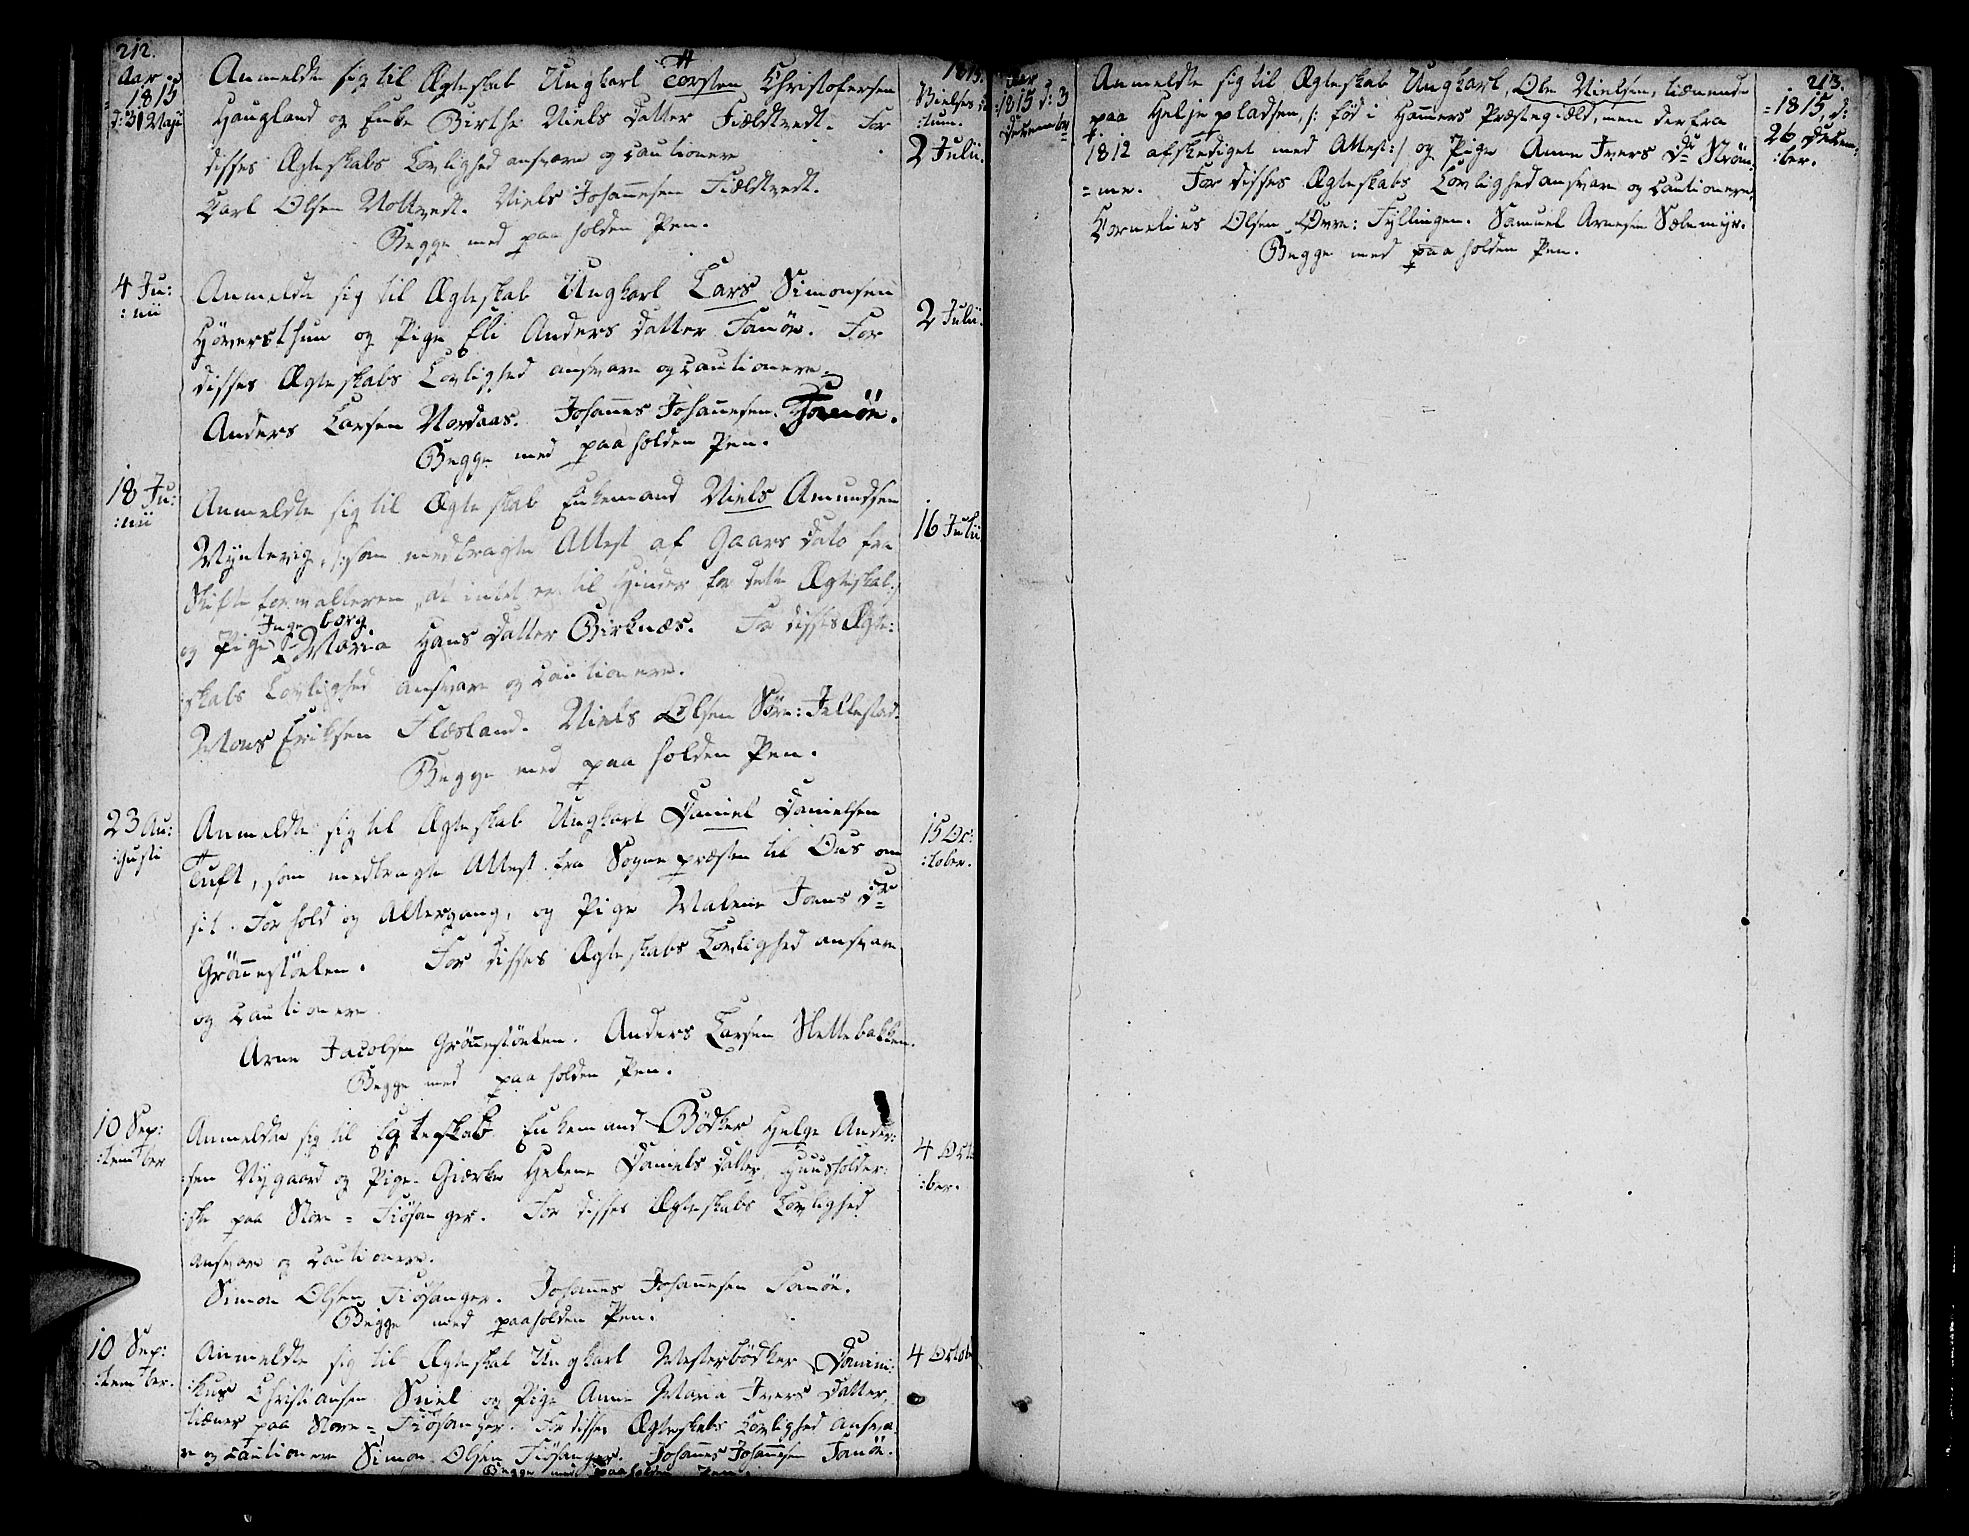 212.
Aar 1815
d: 31 Maji
Anmeldte sig til Ægteskab Ungkarl Torsten Christofersen
Haugland og Enke Birthe Niels datter Fieldtvedt. For
disses Ægteskabs Lovlighed ansvare og cautionere
Carl Olsen Nottvedt. Niels Johannesen Fieldtvedt.
Begge med paa holden Pen.
1815.
2 Julii.
4 Ju:
:nii
Anmeldte sig til Ægteskab Ungkarl Lars Simonsen
Høversthun og Pige Eli Anders datter Tanöe. For
disses Ægteskabs Lovlighed ansvare og cautionere
Anders Larsen Nordaas. Johannes Johannesen Tanöe.
Begge med paa holden Pen.
2 Julii.
18 Ju:
:nii
Anmeldte sig til Ægteskab Enkemand Niels Amundsen
Myntevig, /:som medbragte Attest af Gaars dato fra
Skifteforvalteren, at intet er til Hinder for dette Ægteskab:/
og Pige Ingeborg Maria Hans datter Birknæs. For disses Ægte:
:skabs Lovlighed ansvare og cautionere.
Mons Eriksen Flæsland. Niels Olsen Söre: Jellestad.
Begge med paa holden Pen.
16 Julii
23 Au:
:gusti
Anmeldte sig til Ægteskab Ungkarl Daniel Danielsen
Tuft, som medbragte Attest fra Sognepræsten til Ous om
sit Forhold og Altergang, og Pige Malene Joens Dr
Grönnestöelen. For disses Ægteskabs Lovlighed ansvare
og cautionere
Arne Jacobsen Grönnestöelen. Anders Larsen Slettebakken.
Begge med paa holden Pen.
15 Oc:
:tober.
10 Sep:
:tember
Anmeldte sig til Egteskab Enkemand Bödker Helge Ander:
:sen Nygaard og Pige Giærke Helene Daniels datter, Huusholder:
:ske paa Store = Fiösanger. For disses Ægteskabs Lovlighed
ansvare og cautionere.
Simon Olsen Fiösanger. Johannes Johannesen Tanöe.
Begge med paaholden Pen.
4 Octo
:ber.
10 Sep:
:tember.
Anmeldte sig til Ægteskab Ungkarl Mesterbödker Domini:
:kus Christiansen Sniel og Pige Anne Maria Ivers datter,
tiener paa Store = Fiösanger. For disses Ægteskabs Lovlighed ansva:
re og cautionere Simon Olsen Fiösanger. Johannes Johannesen Tanöe.
Begge med paaholden Pen.
4 Octob
Aar
1815 d: 3
December
Anmeldte sig til Ægteskab Ungkarl, Ole Nielsen, tienende
paa Helje pladsen, /: föd i Hammers Præstegield, men derfra
1812 afskediget med Attest:/ og Pige Anne Ivers Dr Ström:
=me. For disses Ægteskabs Lovlighed ansvare og cautionere
Kornelius Olsen Övre: Fyllingen. Samuel Arnesen Sælemyr.
Begge med paa holden Pen.
213.
=1815, d:
26 Decem:
:ber.